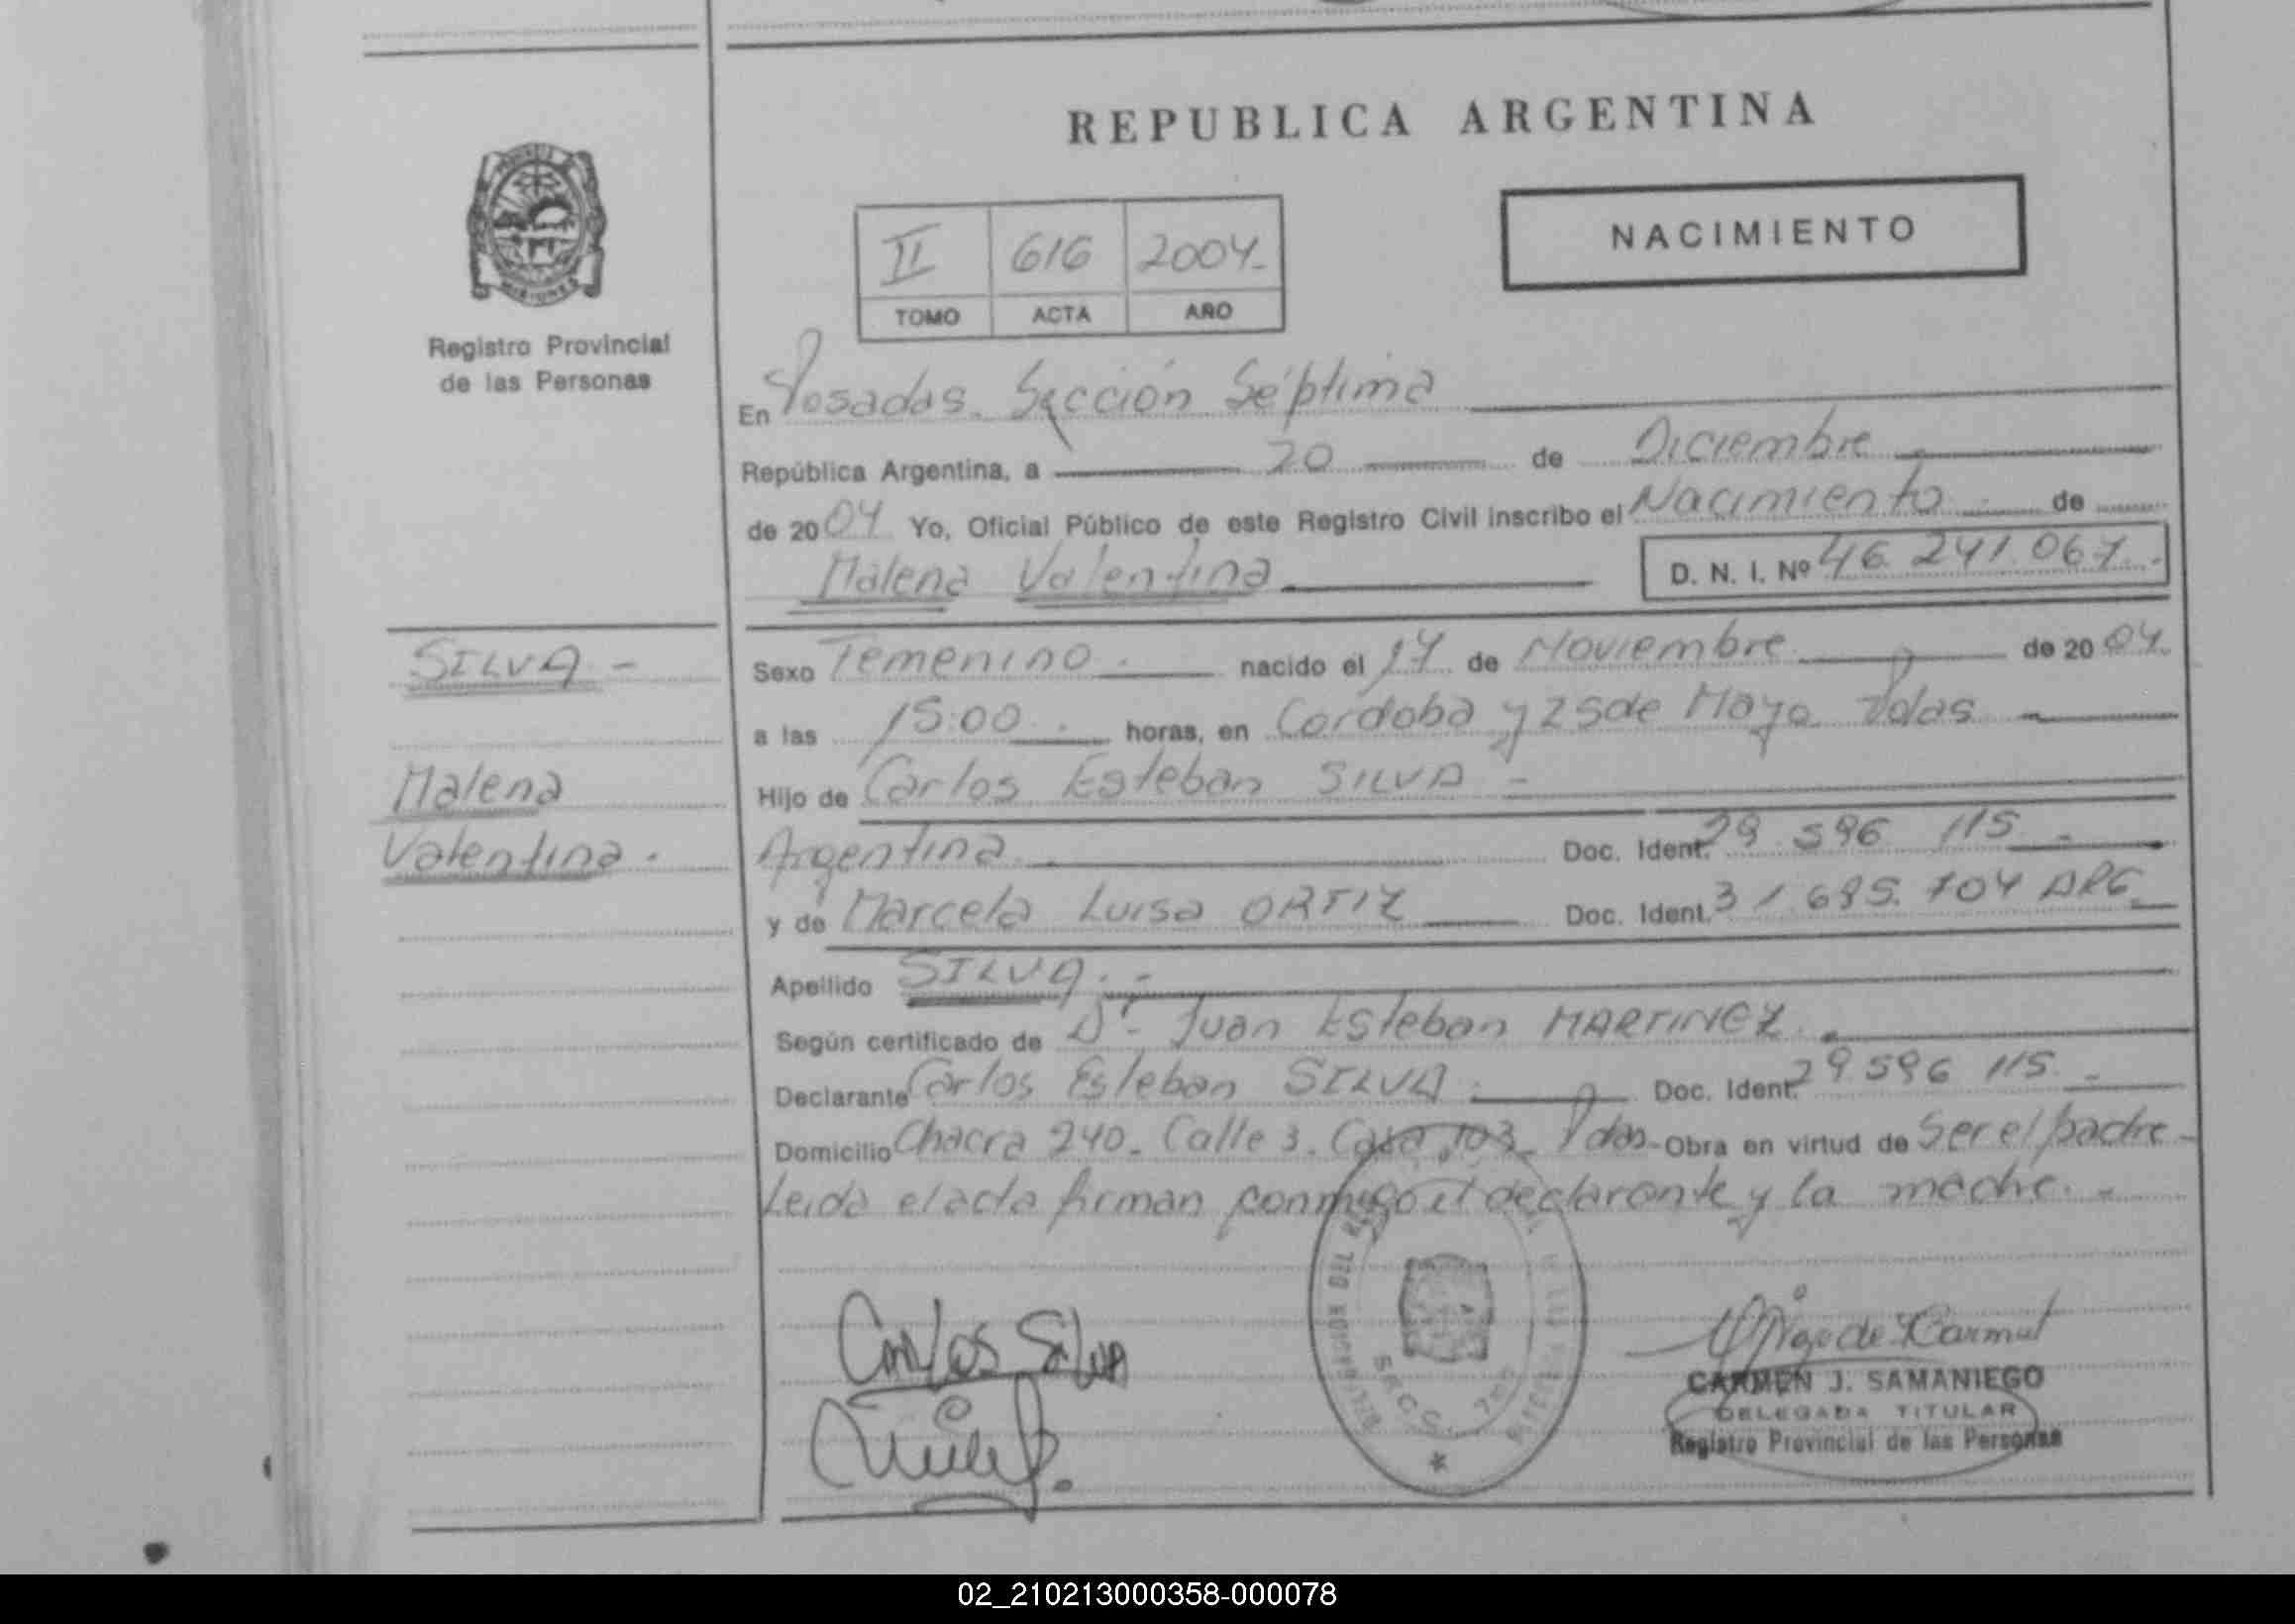 REPUBLICA ARGENTINA
NACIMIENTO
II 616 2004.-
TOMO ACTA AÑO
MISIONES
Registro Provincial
de las Personas
En Posadas. Sección Séptima
República Argentina, a 20 de Diciembre
de 2004 Yo, Oficial Público de este Registro Civil inscribo el Nacimiento de
Malena Valentina D. N. I. Nº 46.241.067.-
SILVA.-
Malena
Valentina.
Sexo Femenino. nacido el 17 de Noviembre de 2004.
a las 15:00. horas, en Cordoba y 25 de Mayo Pdas
Hijo de Carlos Esteban SILVA -
Argentina. Doc. Ident. 29.596.115.-
y de Marcela Luisa ORTIZ Doc. Ident. 31.695.704 ARG.
Apellido SILVA.-
Según certificado de Dr- Juan Esteban MARTINEZ.
Declarante Carlos Esteban SILVA. Doc. Ident. 29.596.115.-
Domicilio Chacra 240. Calle 3. Casa 103. Pdas- Obra en virtud de Ser el padre-
Leida el acta firman conmigo el declarante y la madre.-
Carlos Silva
CARMEN J. SAMANIEGO
DELEGADA TITULAR
Registro Provincial de las Personas
02_210213000358-000078